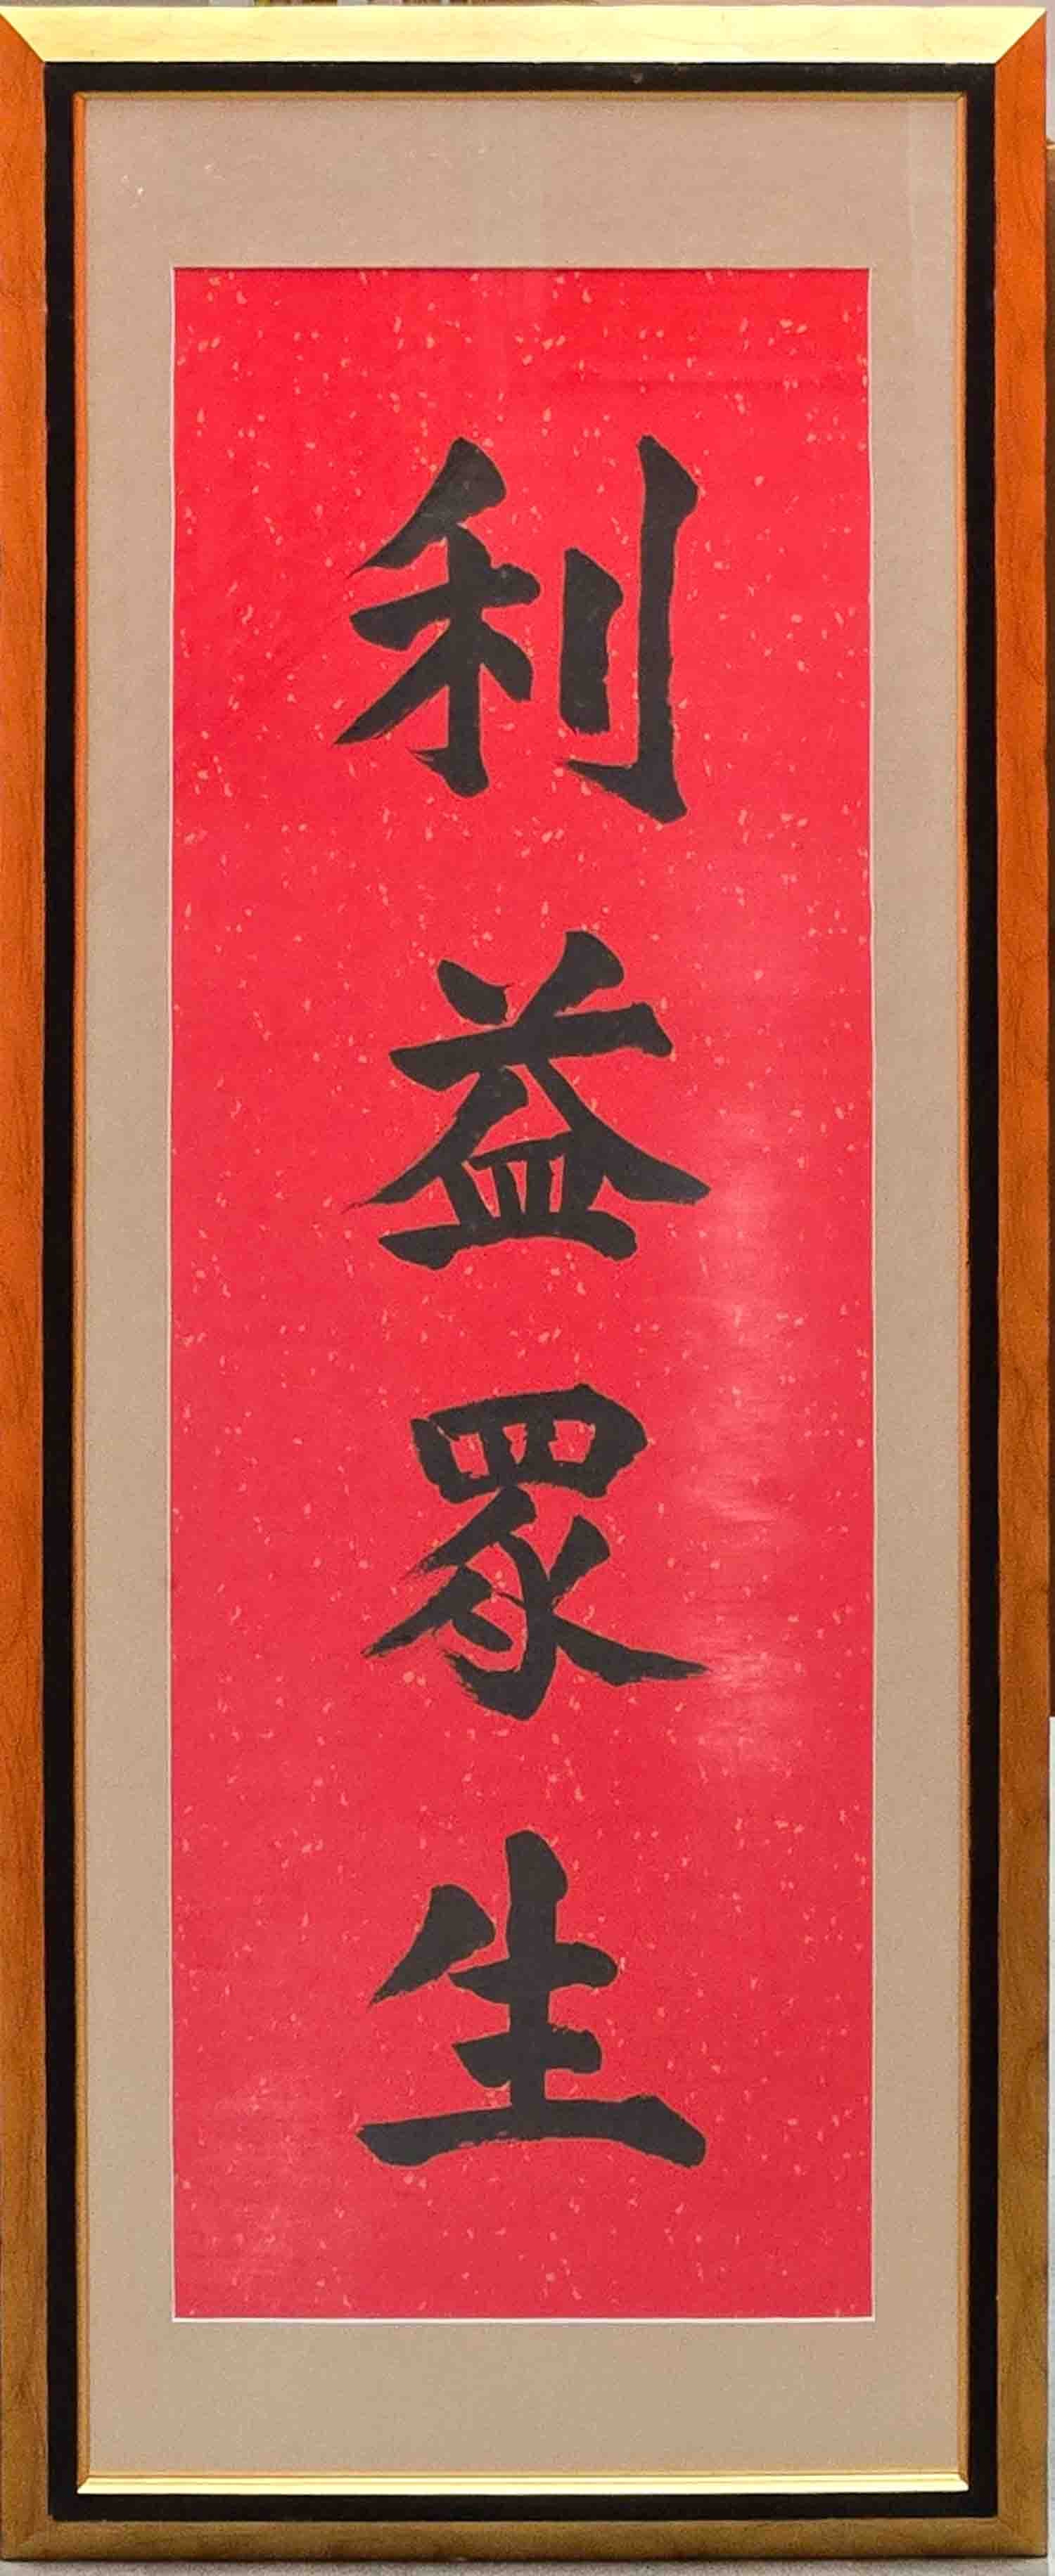 利益眾生